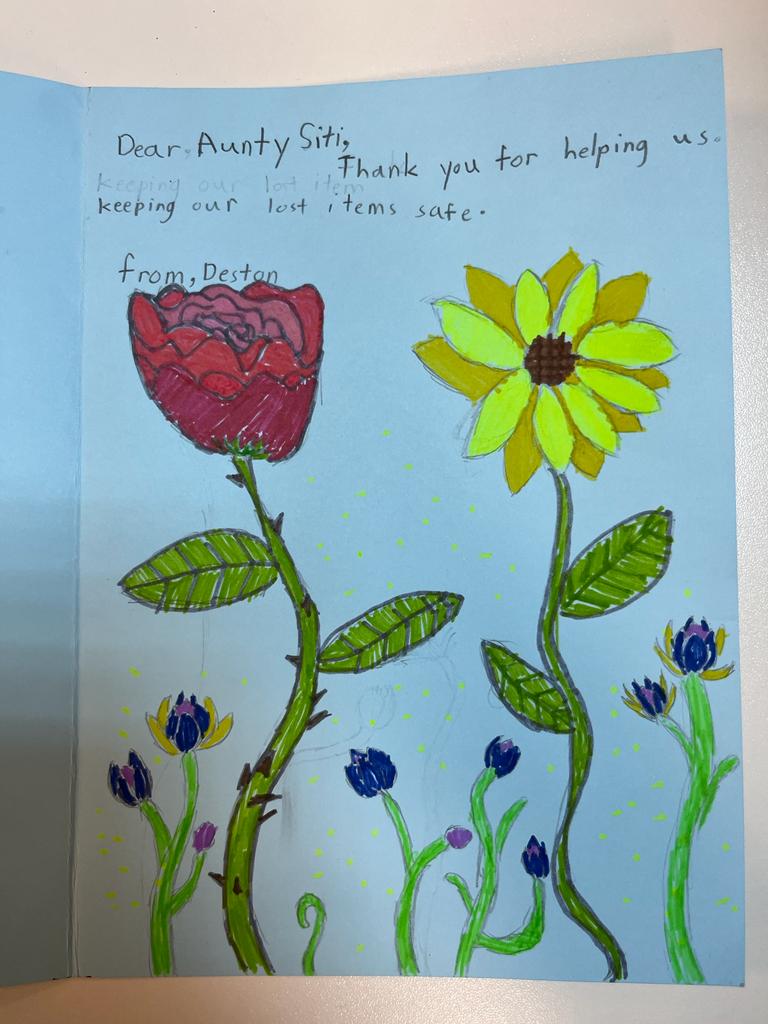 Dear, Aunty Siti,
Thank you for helping us.
keeping our lost item
keeping our lost items safe.
from, Destan